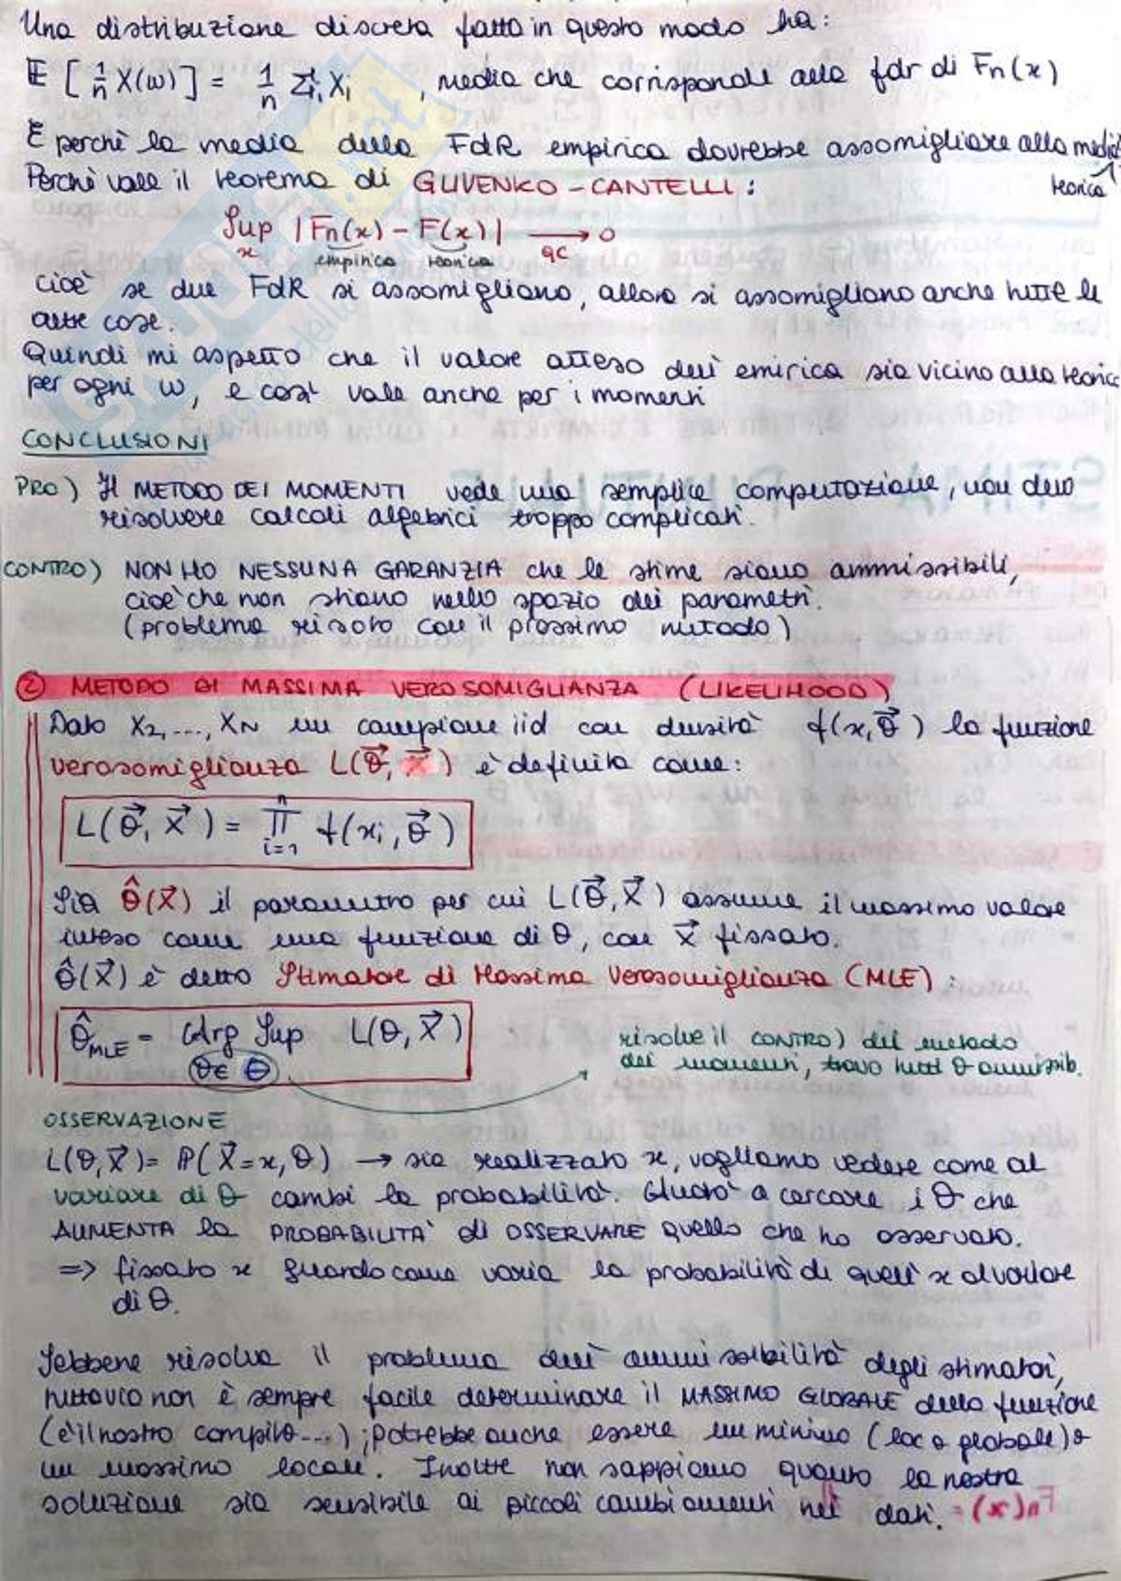 Una distribuzione discreta fatta in questo modo ha:
𝔼 [ 1/n X(ω) ] = 1/n Σi Xi , media che corrisponde alla fdr di Fn(x)
E perchè la media della FdR empirica dovrebbe assomigliare alla media teorica
Perchè vale il teorema di GLIVENKO-CANTELLI:
Sup x | Fn(x) - F(x) | → qc 0
empirica teorica
cioè se due FdR si assomigliano, allora si assomigliano anche tutte le
altre cose.
Quindi mi aspetto che il valore atteso dell'emirica sia vicino alla teorica
per ogni ω, e così vale anche per i momenti
CONCLUSIONI
PRO) Il METODO DEI MOMENTI vede una semplice computazione, non devo
risolvere calcoli algebrici troppo complicati.
CONTRO) NON HO NESSUNA GARANZIA che le stime siano ammissibili,
cioè che non stiano nello spazio dei parametri.
(problema risolto con il prossimo metodo)
② METODO DI MASSIMA VEROSOMIGLIANZA (LIKELIHOOD)
Dato X2,..., XN un campione iid con densità f(x,θ⃗) la funzione
verosomiglianza L(θ⃗, x⃗) è definita come:
L(θ⃗, X⃗) = ∏ i=1 n f(xi, θ⃗)
Sia θ̂(X⃗) il parametro per cui L(θ⃗, X⃗) assume il massimo valore
inteso come una funzione di θ, con x⃗ fissato.
θ̂(X⃗) è detto Stimatore di Massima Verosomiglianza (MLE):
θ̂MLE = Arg Sup θ∈Θ L(θ, X⃗)
risolve il CONTRO) del metodo
dei momenti, trovo tutti θ ammissib.
OSSERVAZIONE
L(θ,X⃗) = ℙ(X⃗=x, θ) → sia realizzato x, vogliamo vedere come al
variare di θ cambi la probabilità. Giustò a cercare i θ che
AUMENTA la PROBABILITA' di OSSERVARE quello che ho osservato.
=> fissato x guardo come varia la probabilità di quell'x al variare
di θ.
Sebbene risolva il problema dell'ammissibilità degli stimatori,
tuttavia non è sempre facile determinare il MASSIMO GLOBALE della funzione
(è il nostro compito...); potrebbe anche essere un minimo (loc o globale) o
un massimo locale. Inoltre non sappiamo quanto la nostra
soluzione sia sensibile ai piccoli cambiamenti nei dati.